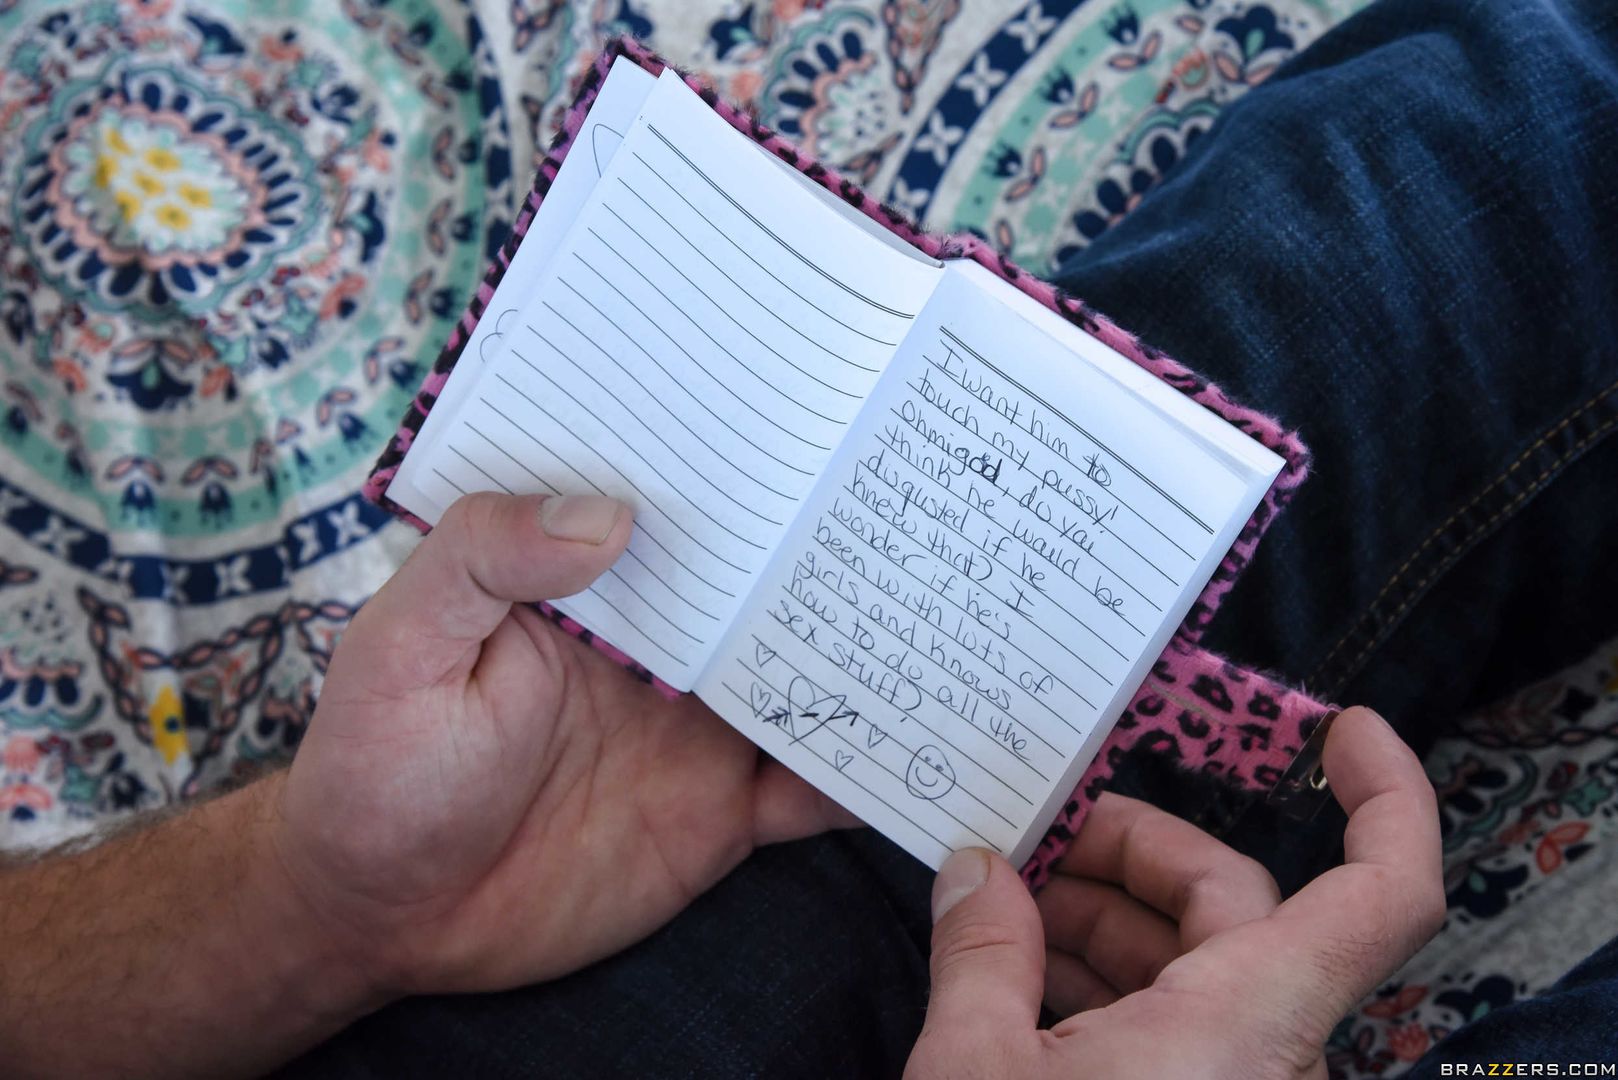 I want him to
touch my pussy!
Ohmigod, do you
think he would be
disgusted if he
knew that? I
wonder if he's
been with lots of
girls and knows
how to do all the
sex stuff?
BRAZZERS.COM